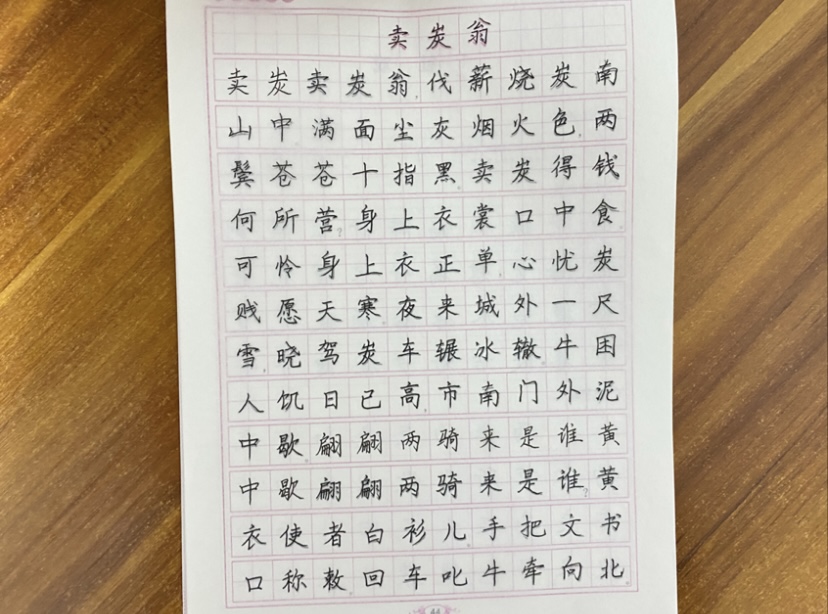 卖炭翁
卖炭卖炭翁伐薪烧炭南
山中满面尘灰烟火色两
鬓苍苍十指黑卖炭得钱
何所营身上衣裳口中食
可怜身上衣正单心忧炭
贱愿天寒夜来城外一尺
雪晓驾炭车辗冰辙牛困
人饥日已高市南门外泥
中歇翩翩两骑来是谁黄
中歇翩翩两骑来是谁黄
衣使者白衫儿手把文书
口称敕回车叱牛牵向北